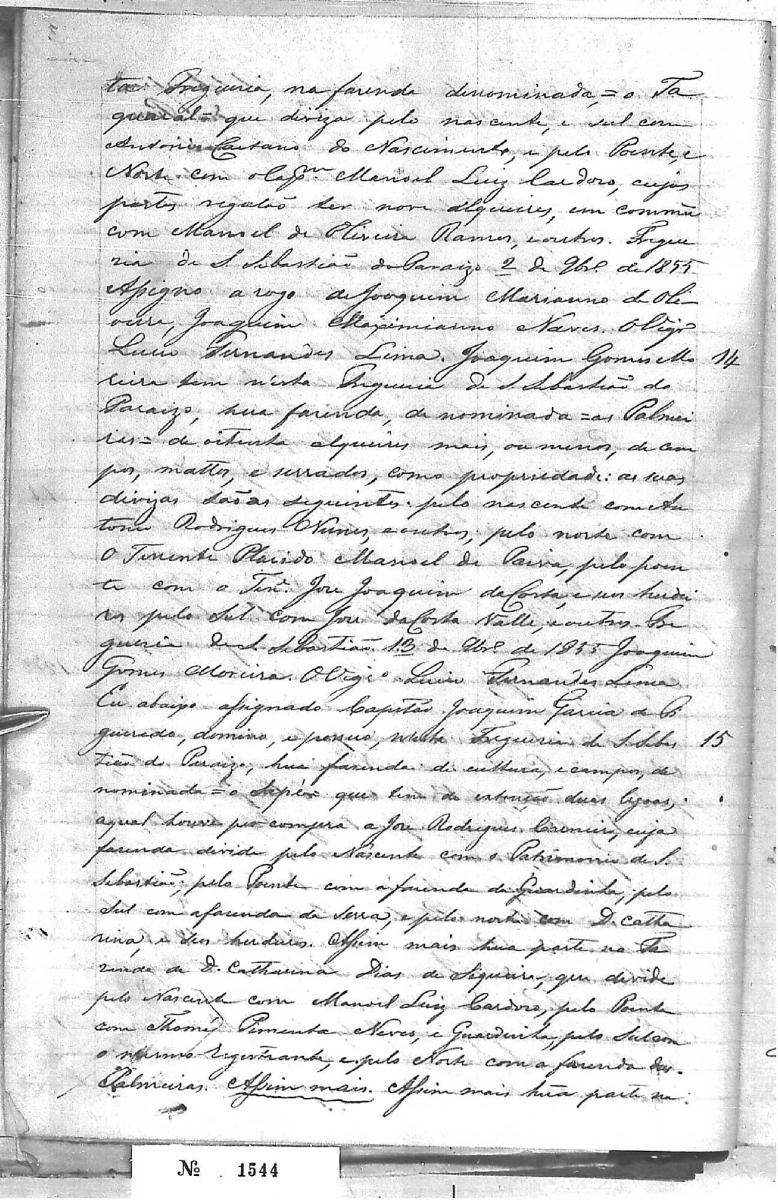 ta Fregueria, na farenda denominada = o Ta
quaral = que diviza pelo nascente, e sul com
Antonio Caetano do Nascimento, e pelo Poente, e
Norte com o Cap.m Manoel Luiz Cardozo, cujas
partes regulão ter nove alqueires, em commū
com Manoel de Oliveira Ramos, e outros. Fregue
ria de S. Sebastião do Paraizo 2 de 9br.o de 1855
Assigno a rogo de Joaquim Marianno de Oli-
veira, Joaquim Maximianno Neves. O Vigr.o
Lucio Fernandes Lima. Joaquim Gomes Mo 14
reira tem n'esta Fregueria de S. Sebastião do
Paraizo, hua farenda, denominada = as Palmei
ras = de oitenta alqueires mais, ou menos, de cam
pos, mattos, e serrados, como propriedade: as suas
divizas são as seguintes: pelo nascente com An
tonio Rodrigues Nunes, e outros, pelo norte com
O Tenente Placido Manoel de Paiva, pelo poen
te com o Ten.e Jose Joaquim da Costa, e seos herdei
ros pelo Sul com Jose da Costa Valle, e outros. Fre
gueria de S. Sebastião 13 de 9br.o de 1855 Joaquim
Gomes Moreira. O Vigr.o Lucio Fernandes Lima
Eu abaixo assignado Capitão Joaquim Garcia de Fi
gueredo, domino, e possuo, nesta Fregueria de S. Sebas 15
tião do Paraizo, hua fazenda de cultura, e campos, de
nominada = o Sapé = que tem de extenção duas legoas,
a qual houve por compra a Jose Rodrigues Carneiro, cuja
fazenda divide pelo Nascente com o Patrimonio de S.
Sebastião, pelo Poente com a fazenda da Guardinha, pelo
Sul com a fazenda da Serra, e pelo norte com D. Catha
rina, e seos herdeiros. Assim mais hua parte na Fa
zenda de D. Catharina Dias de Siqueira, que divide
pelo Nascente com Manoel Luiz Cardozo, pelo Poente
com Thomé Pimenta Neves, e Guardinha, pelo Sul com
o mesmo registrante, e pelo Norte com a fazenda das
Palmeiras. Assim mais. Assim mais hūa parte na
Nº 1544